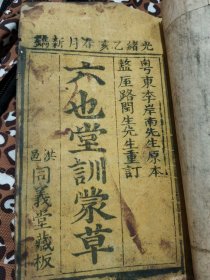 光緒乙亥春月新鐫
粵東李岸南先生原本
盩厔路閏生先生重訂
六也堂訓蒙草
洪邑
同義堂藏板